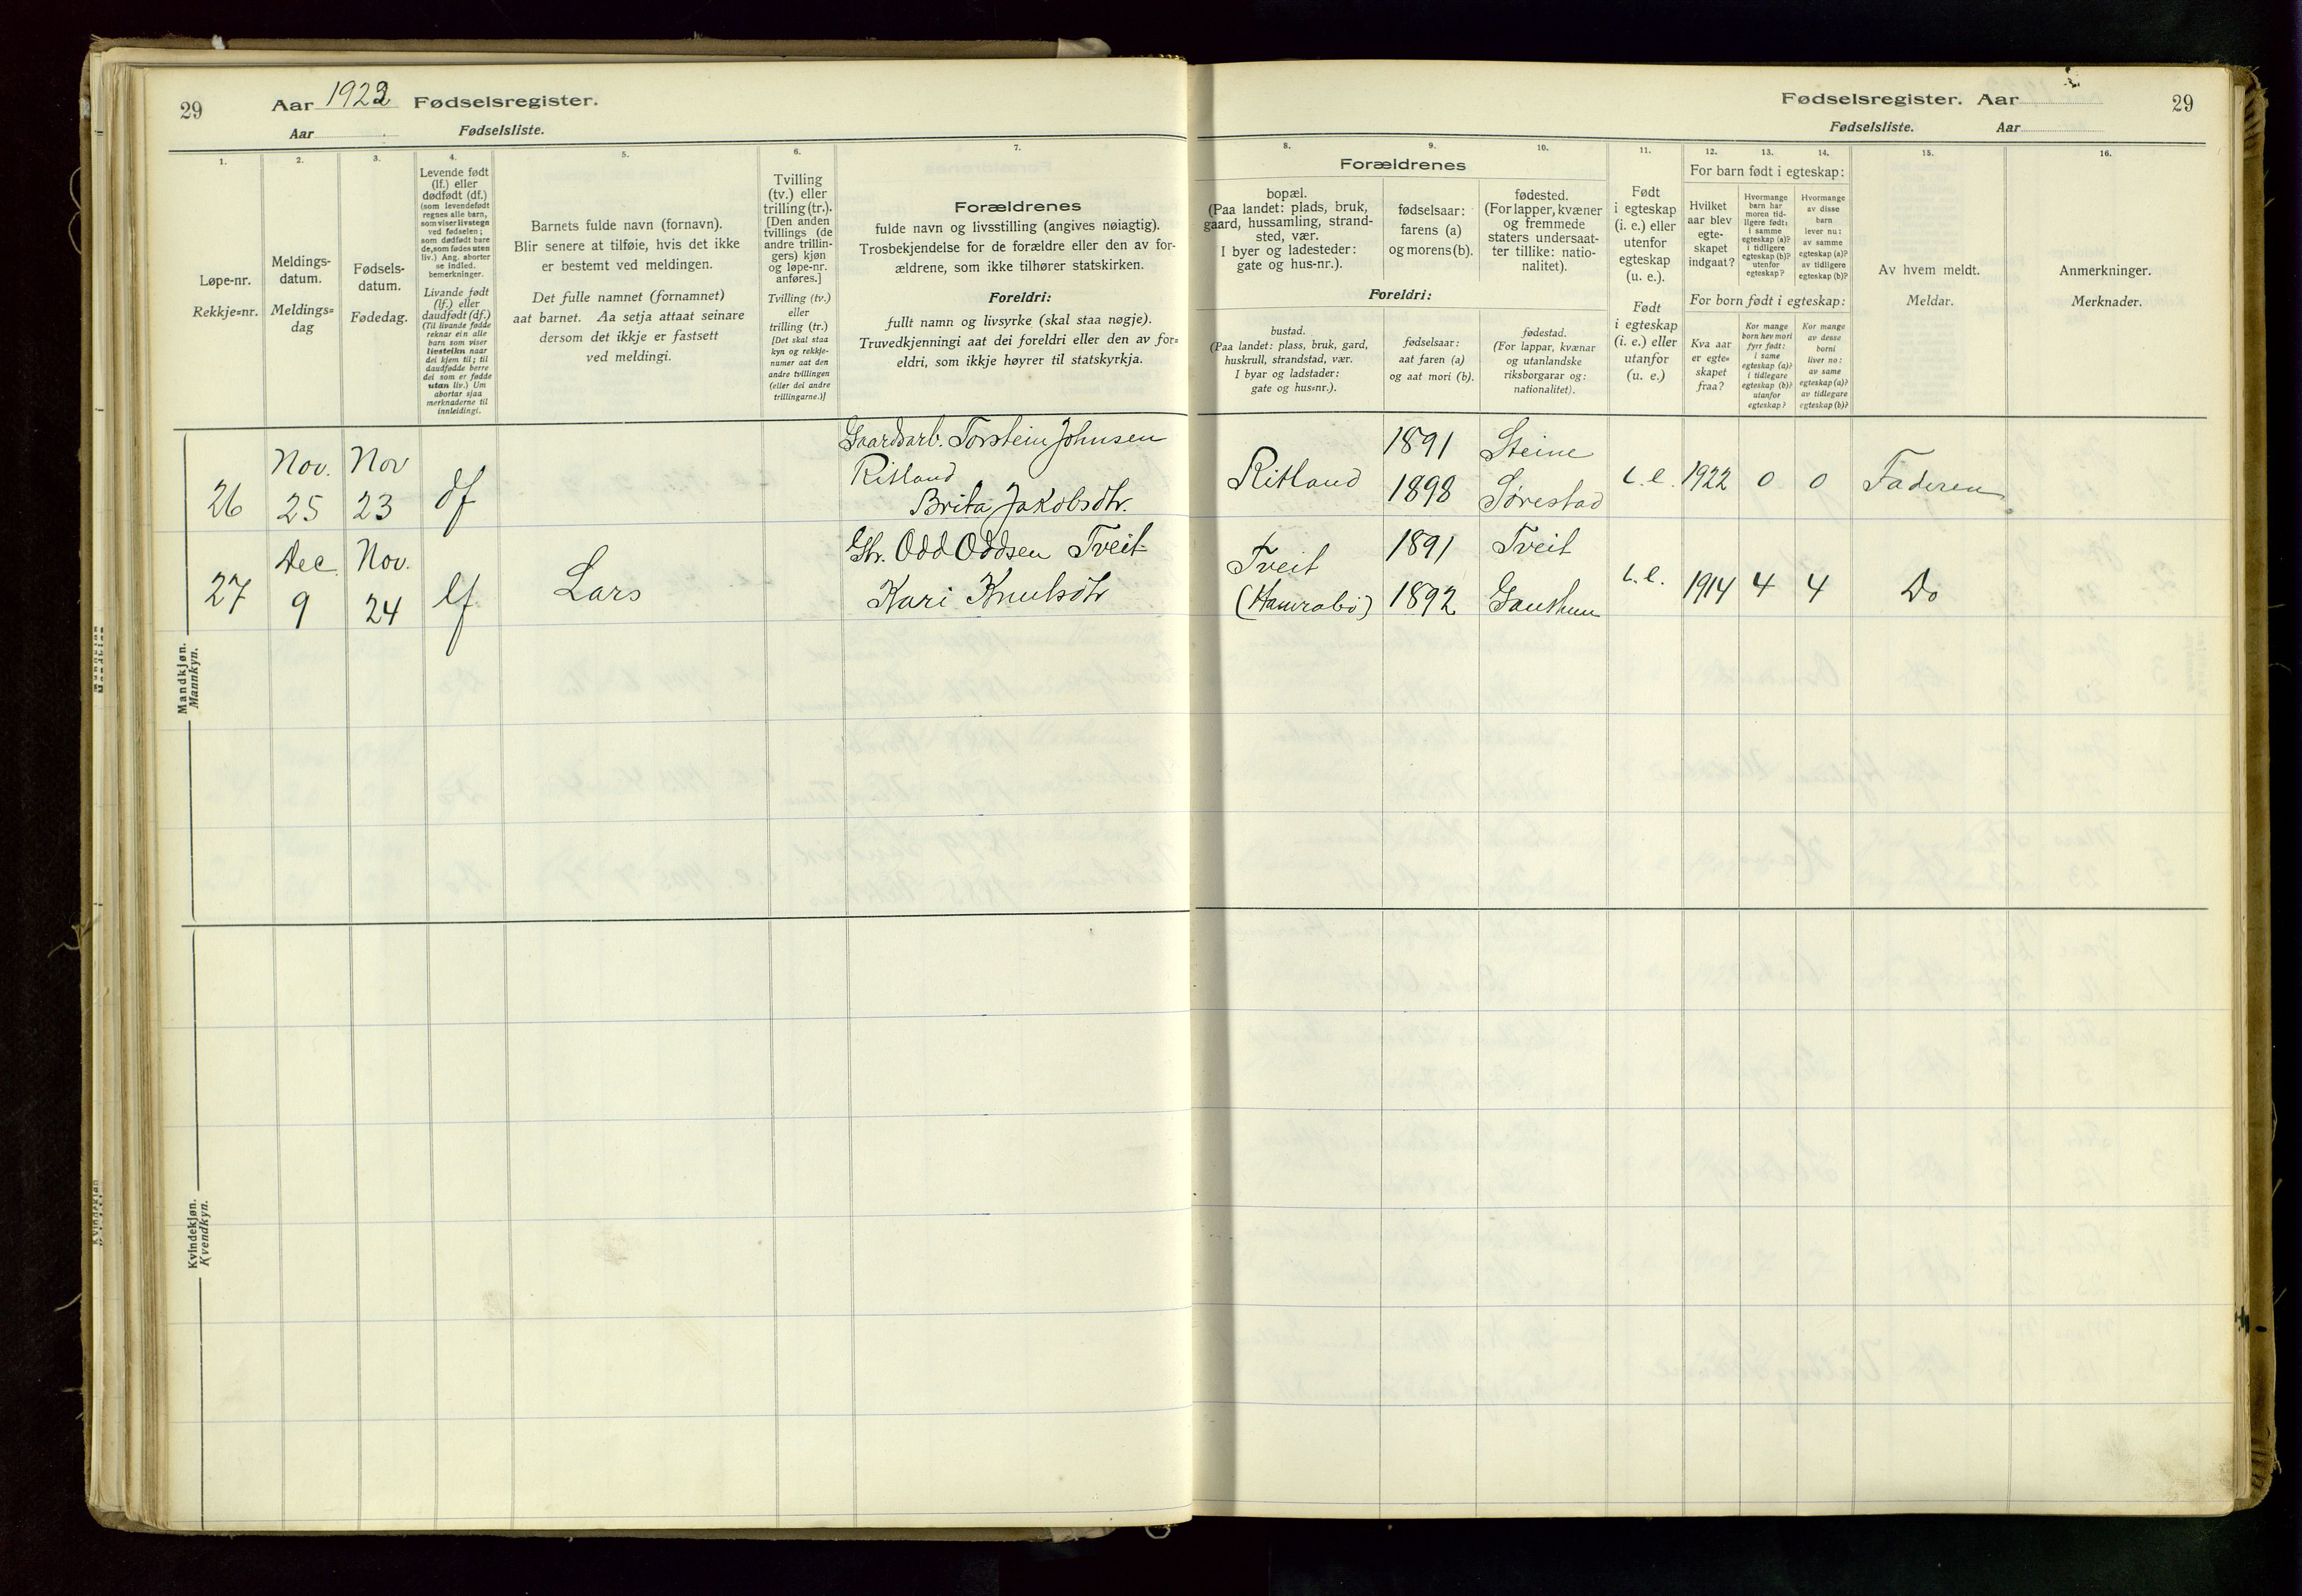 29
Aar 1922 Fødselsregister.
Aar Fødselsliste.
1.
Løpe-nr.
Rekkje=nr.
2.
Meldings-
datum.
Meldings=
dag
3.
Fødsels-
datum.
Fødedag.
4.
Levende født
(lf.) eller
dødfødt (df.)
(som levendefødt
regnes alle barn,
som viser livstegn
ved fødselen;
som dødfødt bare
de, som fødes uten
liv.) Ang. aborter
se indled.
bemerkninger.
Livande født
(lf.) eller
daudfødt (df.)
(Til livande fødde
reknar ein alle
barn som viser
livsteikn naar
dei kjem til; til
daudfødde berre
dei som er fødde
utan liv.) Um
abortar sjaa
merknaderne til
innleidingi.
5.
Barnets fulde navn (fornavn).
Blir senere at tilføie, hvis det ikke
er bestemt ved meldingen.
Det fulle namnet (fornamnet)
aat barnet. Aa setja attaat seinare
dersom det ikkje er fastsett
ved meldingi.
6.
Tvilling
(tv.) eller
trilling (tr.).
[Den anden
tvillings (de
andre trillin-
gers) kjøn
og løpe-nr.
anføres.]
Tvilling (tv.)
eller
trilling (tr.)
[Det skal staa
kyn og rekkje-
numer aat den
andre tvillingen
(eller dei andre
trillingarne.)]
7.
Forældrenes
fulde navn og livsstilling (angives nøiagtig).
Trosbekjendelse for de forældre eller den av for-
ældrene, som ikke tilhører statskirken.
Foreldri:
fullt namn og livsyrke (skal staa nøgje).
Truvedkjenningi aat dei foreldri eller den av for=
eldri, som ikkje høyrer til statskyrkja.
Mandkjøn.
Mannkyn.
26
Nov.
25
Nov
23
df
Gaardarb. Torstein Johnsen
Ritland
Brita Jakobsdtr.
27
Dec.
9
Nov.
24
lf
Lars
Gbr. Odd Oddsen Tveit
Kari Knutsdtr
Kvindekjøn.
Kvendkyn.
Fødselsregister. Aar
29
Fødselsliste. Aar
8.
9.
10.
Forældrenes
bopæl.
(Paa landet: plads, bruk,
gaard, hussamling, strand-
sted, vær.
I byer og ladesteder:
gate og hus-nr.).
fødselsaar:
farens (a)
og morens (b).
fødested.
(For lapper, kvæner
og fremmede
staters undersaat-
ter tillike: natio-
nalitet).
Foreldri:
bustad.
(Paa landet: plass, bruk, gard,
huskrull, strandstad, vær.
I byar og ladstader:
gate og hus=nr.).
fødselsaar:
aat faren (a)
og aat mori (b).
fødestad.
(For lappar, kvænar
og utanlandske
riksborgarar og:
nationalitet).
11.
Født
i egteskap
(i. e.) eller
utenfor
egteskap
(u. e.).
Født
i egteskap
(i. e.) eller
utanfor
(u. e.)
12.
13.
14.
For barn født i egteskap:
Hvilket
aar blev
egte-
skapet
indgaat?
Hvormange
barn har
moren tid-
ligere født:
i samme
egteskap (a)?
i tidligere
egteskap (b)?
utenfor
egteskap?
Hvormange
av disse
barn
lever nu:
av samme
egteskap (a)?
av tidligere
egteskap (b)?
For born født i egteskap:
Kva aar
er egte=
skapet
fraa?
Kor mange
born hev mori
fyrr født:
i same
egteskap (a)?
i tidlegare
egteskap (b)?
utanfor
egteskap?
Kor mange
av desse
borni
liver no:
av same
egteskap (a)?
av tidlegare
egteskap (b)?
15.
Av hvem meldt.
Meldar.
16.
Anmerkninger.
Merknader.
Ritland
1891
1898
Steine
Sørestad
i. e.
1922
0
0
Faderen
Tveit
(Hamrabø)
1891
1892
Tveit
Gaushun
i. e.
1914
4
4
Do